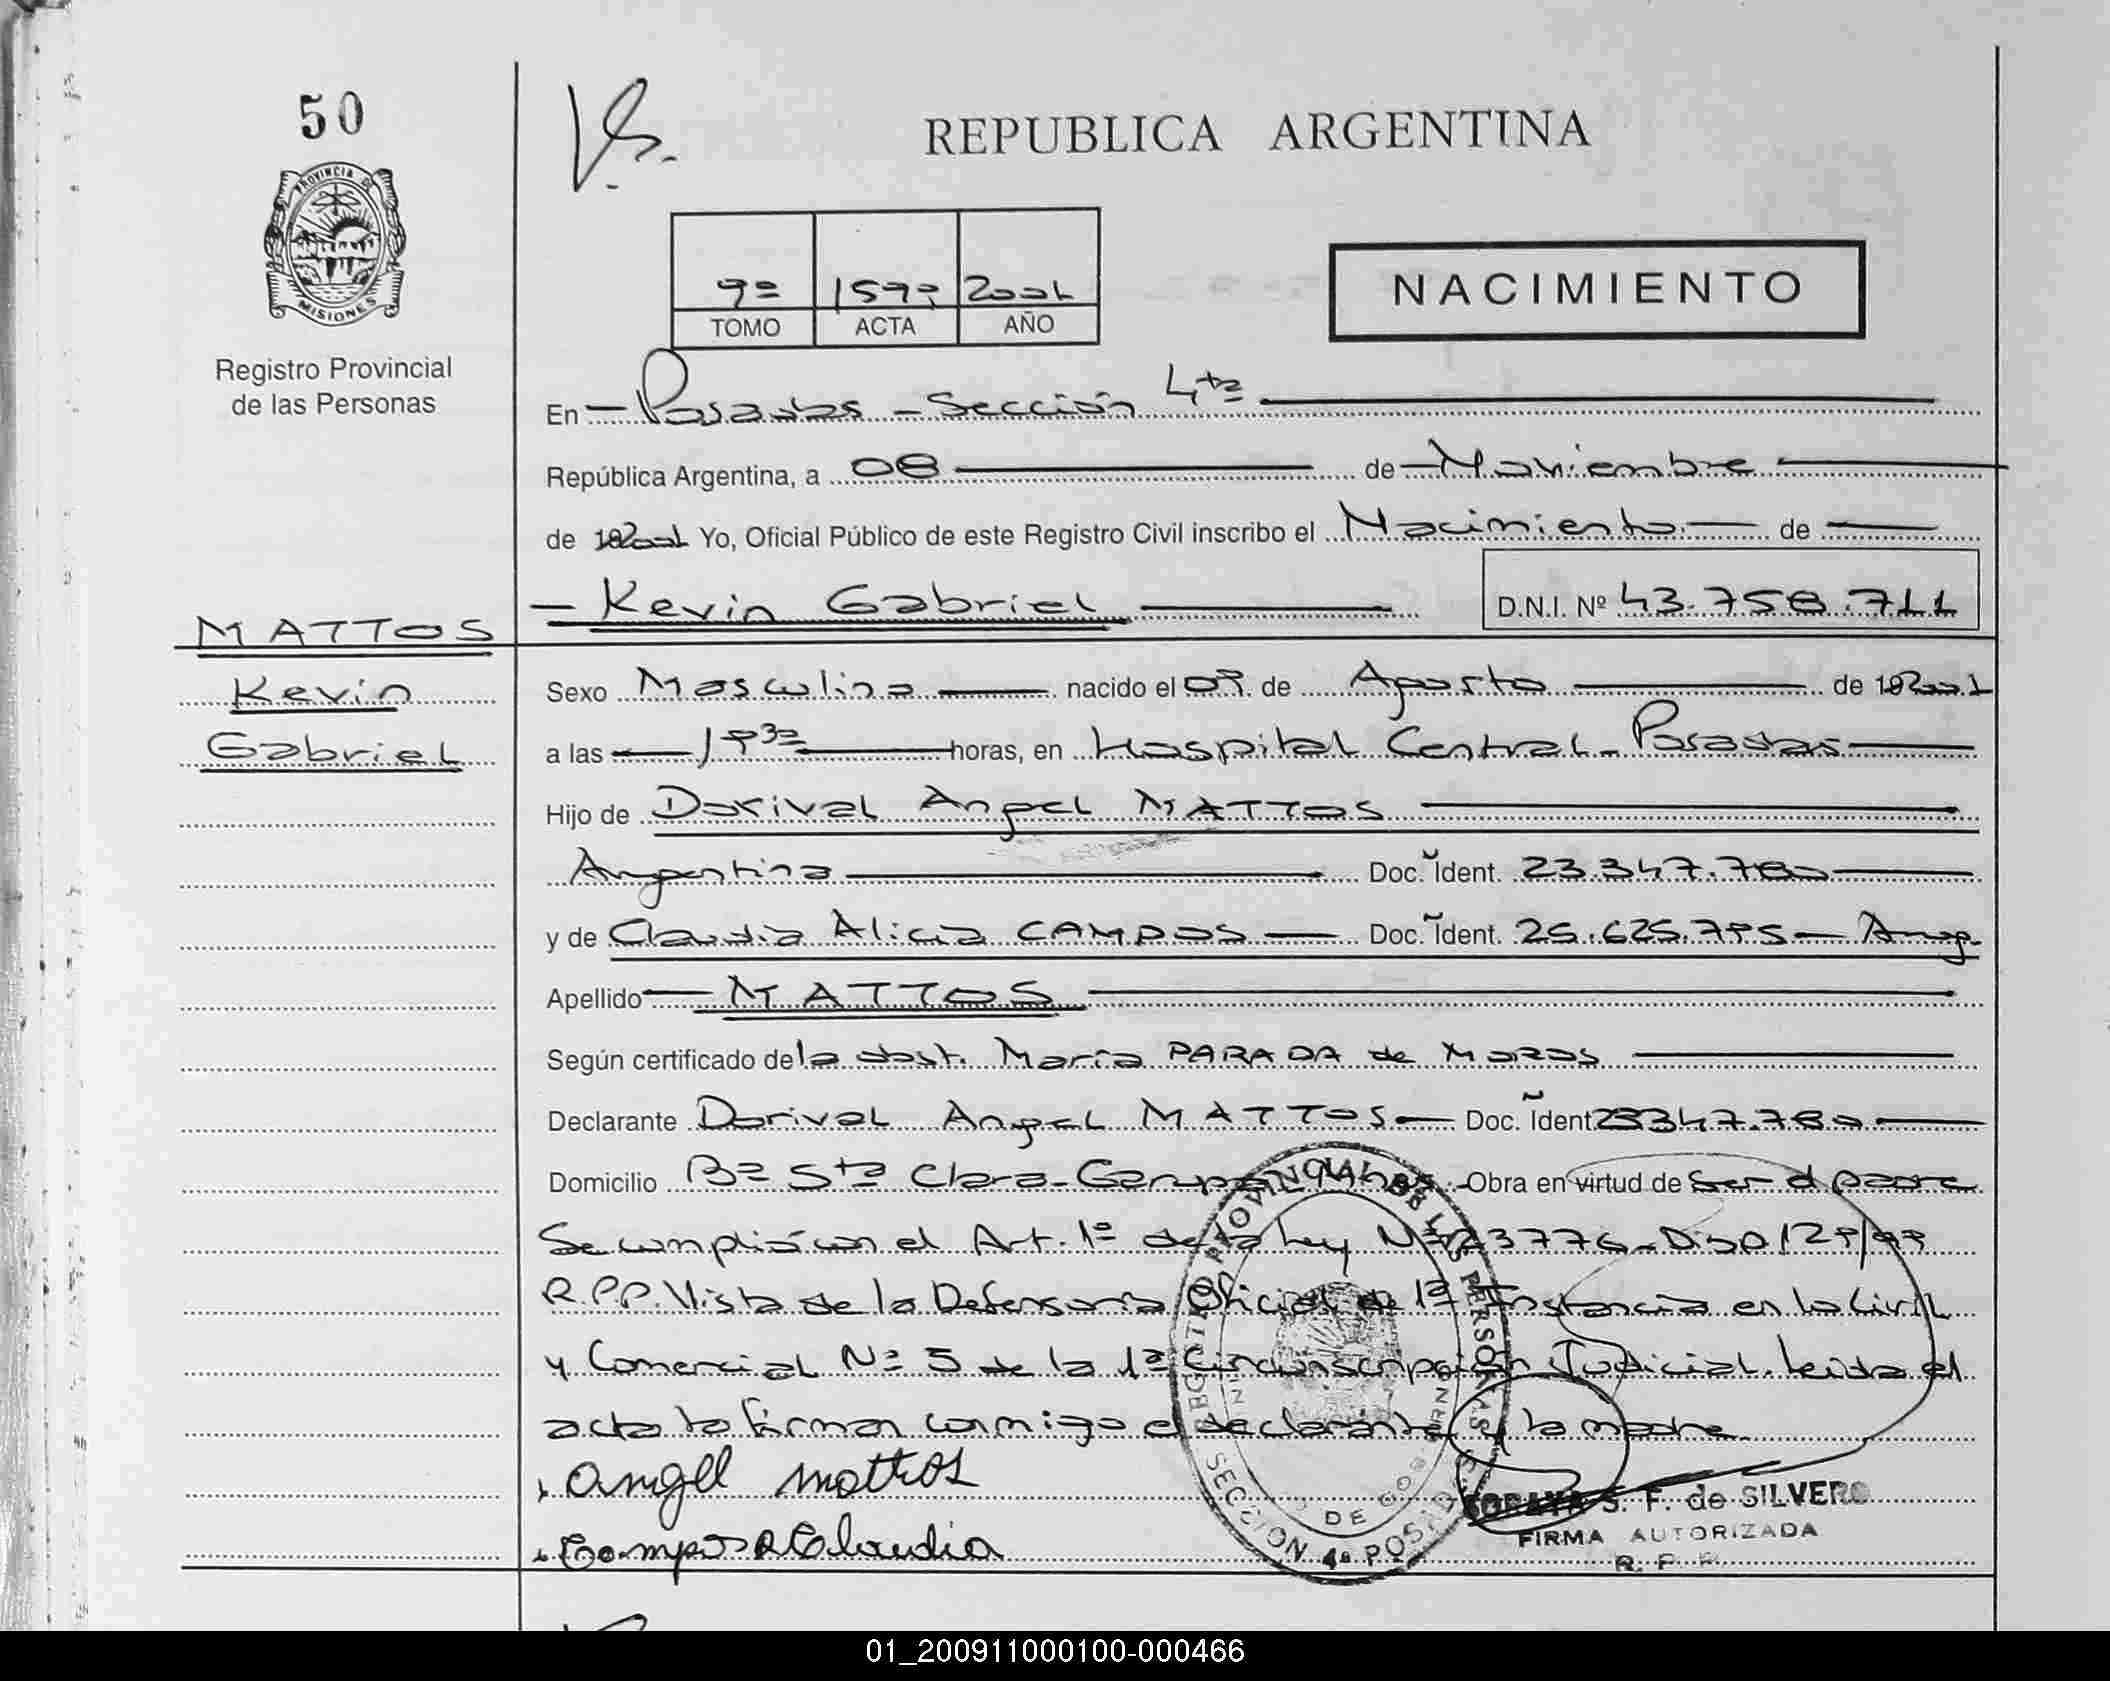 50
PROVINCIA DE
MISIONES
Registro Provincial
de las Personas
REPUBLICA ARGENTINA
2001
TOMO ACTA AÑO
NACIMIENTO
En - Posadas - Sección 4ta
República Argentina, a 08 de Noviembre
de 2001 Yo, Oficial Público de este Registro Civil inscribo el Nacimiento de
- Kevin Gabriel D.N.I. Nº 43.758.711
MATTOS
Kevin
Gabriel
Sexo Masculino nacido el de Agosto de 2001
a las horas, en Hospital Central - Posadas
Hijo de Dorival Angel MATTOS
Argentina Doc. Ident. 23.347.780
y de Claudia Alicia CAMPOS Doc. Ident. Arg.
Apellido MATTOS
Según certificado de la obst. María PARADA de
Declarante Dorival Angel MATTOS Doc. Ident 23347.780
Domicilio Bº Sta Clara - Obra en virtud de Ser el padre
Se cumplió con el Art. 1º de la Ley Nº 23776 - Disp
R.P.P. Vista de la Defensoría Oficial de 1ª Instancia en lo Civil
y Comercial Nº 5 de la 1ª Circunscripción Judicial. Leída el
acta la firman conmigo el declarante y la madre
Angel Mattos
Campos A Claudia
REGISTRO PROVINCIAL DE LAS PERSONAS
SECCION 4ª POSADAS
S. F. de SILVERO
FIRMA AUTORIZADA
R. P. P.
01_200911000100-000466